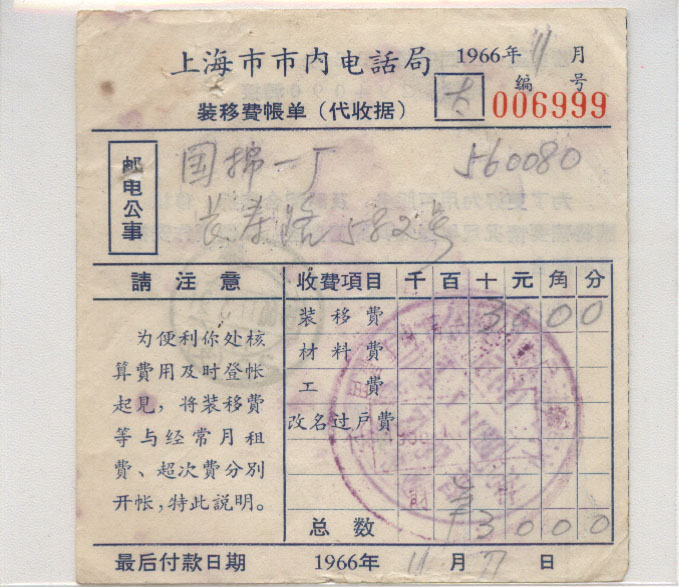 上海市市内电話局
1966年11月
装移費帳单(代收据)
编号
006999
邮电公事
国棉一厂 560080
长寿路582号
請注意
为便利你处核
算費用及时登帐
起見,將装移費
等与经常月租
费、超次費分別
开帐,特此說明。
收費項目 千百十元角分
装移費 3000
材料費
工費
改名过戶費
总数 3000
最后付款日期 1966年11月 日